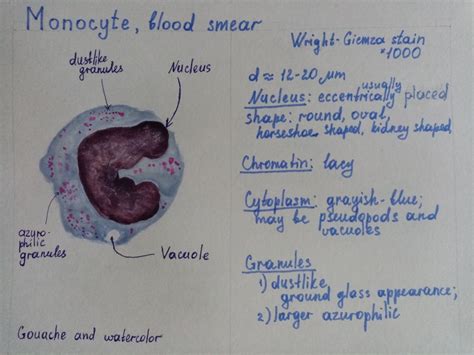 Monocyte, blood smear
dustlike
granules
Nucleus
azuro-
philic
granules
Vacuole
Gouache and watercolor
Wright-Giemza stain
×1000
d ≈ 12-20 µm
usually
Nucleus: eccentrically placed
shape: round, oval,
horseshoe shaped, kidney shaped
Chromatin: lacy
Cytoplasm: grayish-blue;
may be pseudopods and
vacuoles
Granules
1) dustlike,
ground glass appearance;
2) larger azurophilic